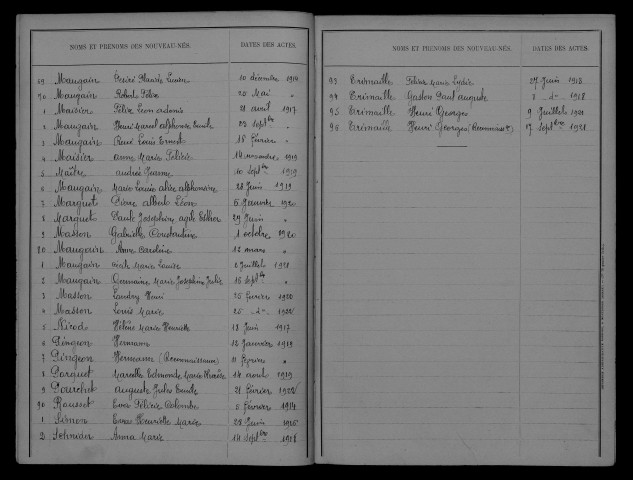 NOMS ET PRENOMS DES NOUVEAU-NÉS. DATES DES ACTES.
69 Maugain Désiré Claude Lucien 10 décembre 1914
70 Maugain Robert Félix 20 Mai "
1 Maisier Félix Leon 21 avril 1917
2 Maugain Henri Marcel alphonse Emile 23 septbre "
3 Maugain René Louis Ernest 18 février "
4 Maisier Marie Félicie 14 novembre 1919
5 Maître andrée Jeanne 10 septbre 1919
6 Maugain Marie Louise alice alphonsine 28 Juin 1919
7 Marguet Pierre albert Léon 6 Janvier 1920
8 Marguet Paule Josephine Esther 29 Juin "
9 Masson Gabrielle Constantine 1 octobre 1920
80 Maugain Anne Caroline 12 mars "
1 Maugain Marie Louise 2 Juillet 1921
2 Maugain Germaine Marie Josephine Julie 16 septbre "
3 Masson Henri 25 février 1920
4 Masson Louis Marie 25 -d- 1922
5 Nicod Hélène Marie Henriette 18 Juin 1917
6 Pingeon Hermann 12 Janvier 1919
7 Pingeon Hermann (Reconnaissance) 11 "
8 Parquet Marcelle Edmonde Marie 14 aout 1919
9 Pourchet auguste Jules Emile 21 février 1922
90 Rousset Félicie Colombe 2 février 1914
1 Simon Henriette Marie 28 Juin
2 Anna Marie 14 septbre 1918
NOMS ET PRENOMS DES NOUVEAU-NÉS. DATES DES ACTES.
93 Trémaille Marie Lydie 27 Juin 1918
94 Trémaille Gaston Paul auguste 8 -d- 1918
95 Trémaille Henri Georges 9 Juillet 1921
96 Trémaille Henri Georges (Reconnaisce) 17 septbre 1921